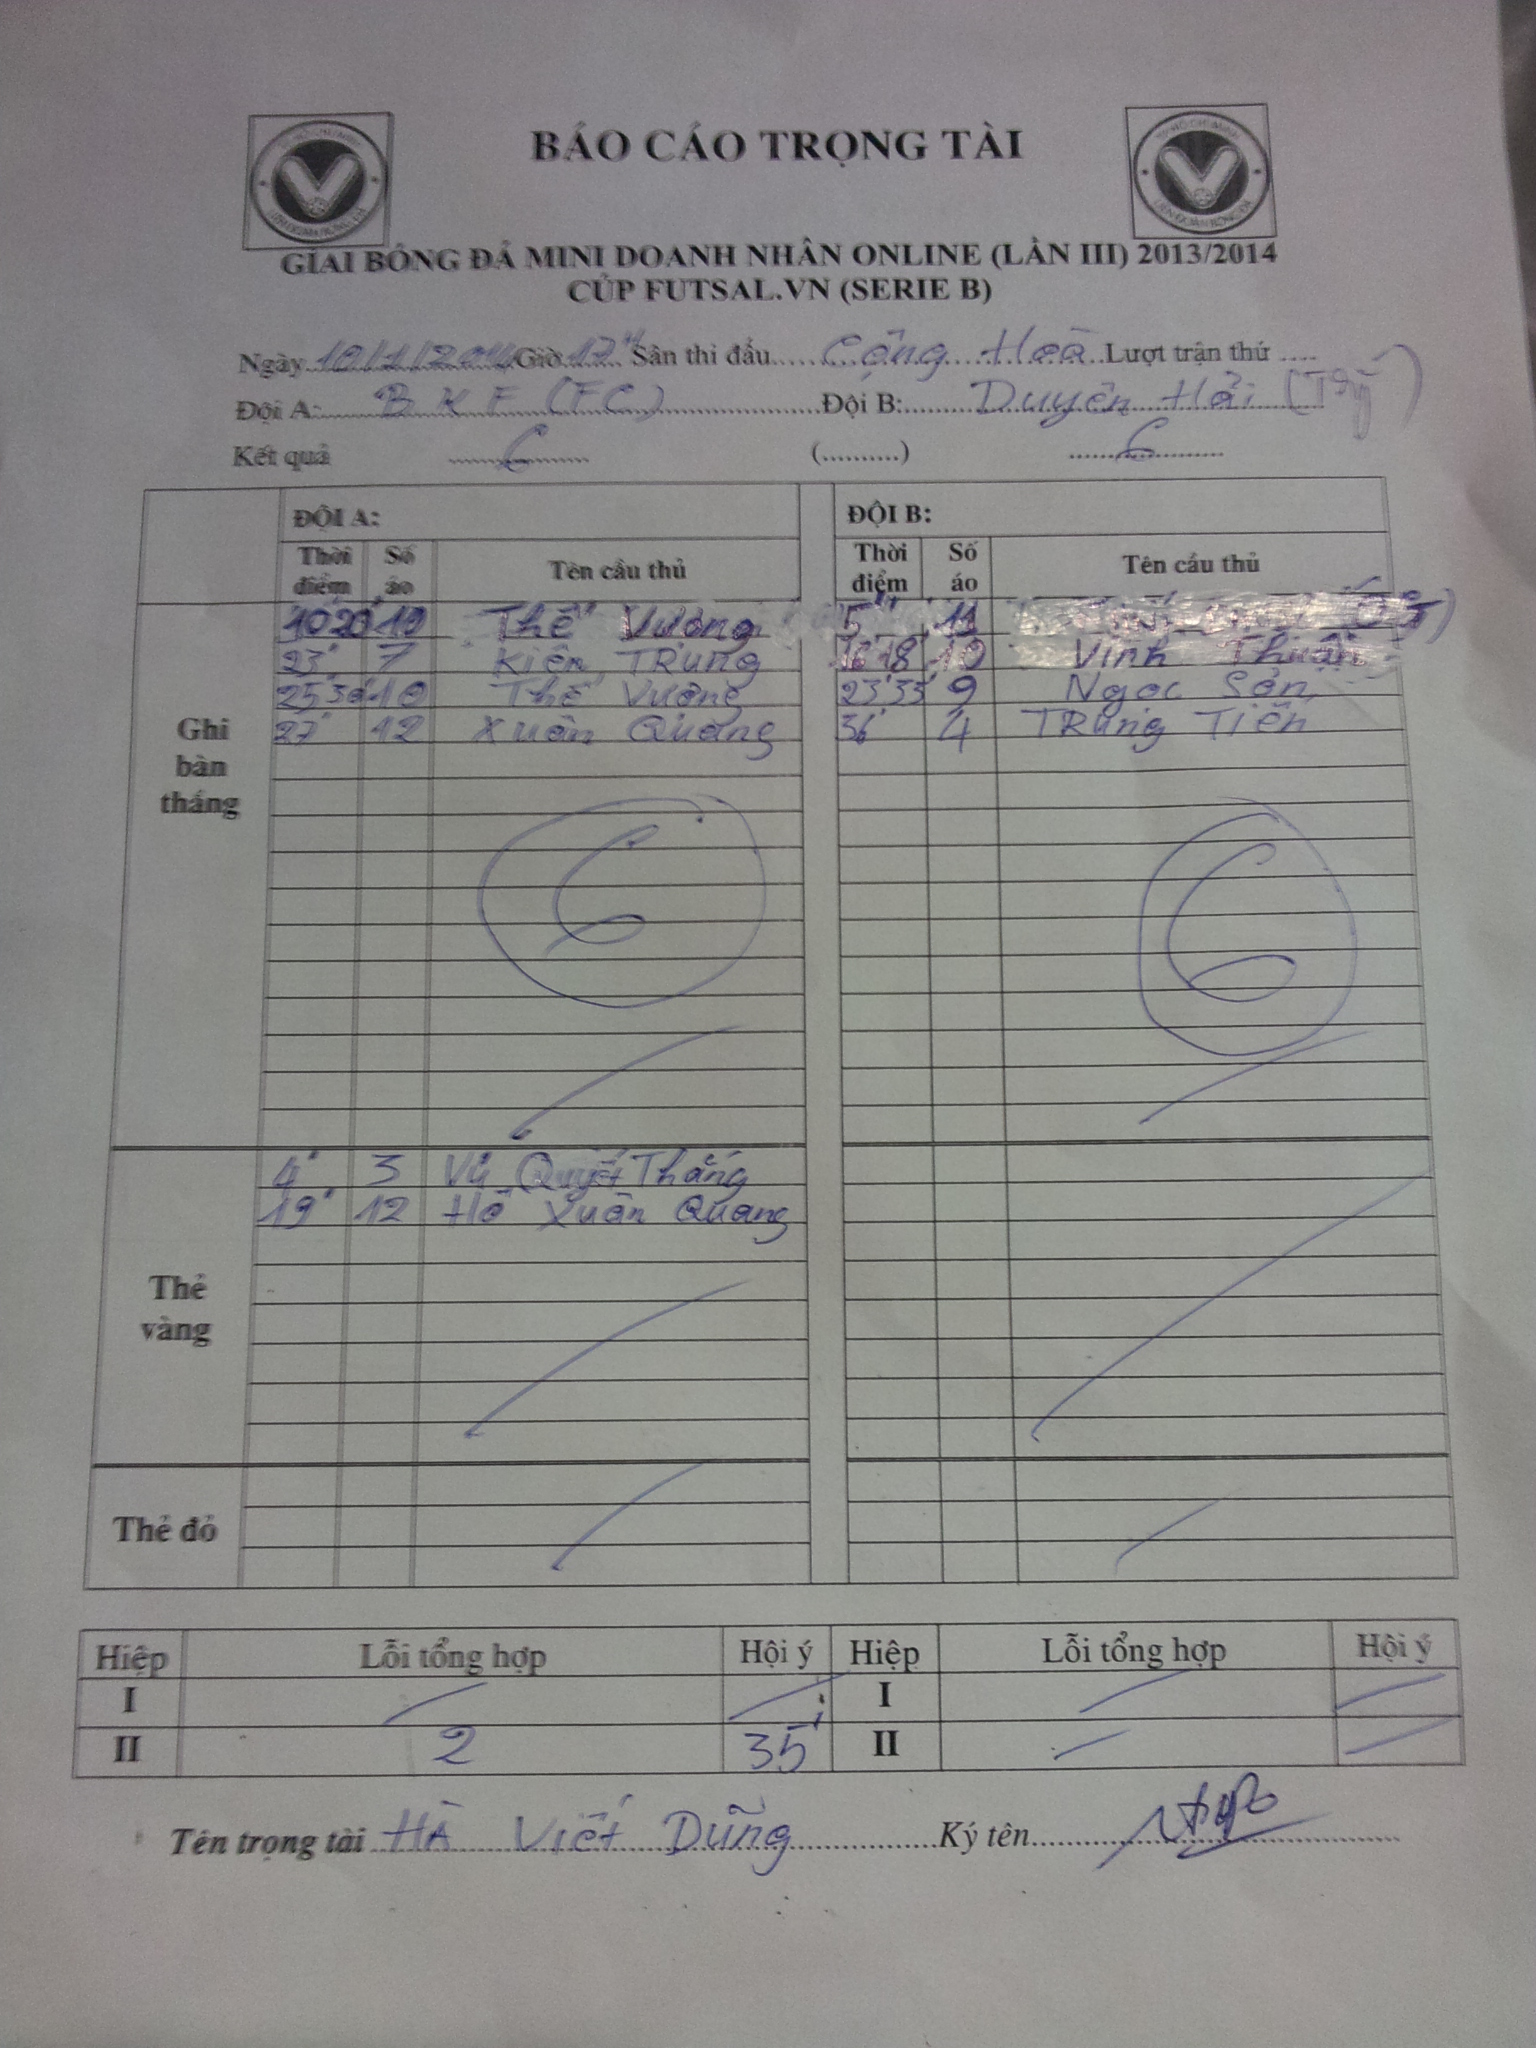 BÁO CÁO TRỌNG TÀI
GIẢI BÓNG ĐÁ MINI DOANH NHÂN ONLINE (LẦN III) 2013/2014
CÚP FUTSAL.VN (SERIE B)
Ngày 10/1/2014 Giờ 17H Sân thi đấu Cộng Hoà Lượt trận thứ .....
Đội A: BKF (FC) Đội B: Duyên Hải
Kết quả 6 (..........) 6
ĐỘI A: ĐỘI B:
Thời điểm Số áo Tên cầu thủ Thời điểm Số áo Tên cầu thủ
Ghi bàn thắng
10' 20' 10 Thế Vương 5' 11
23' 7 Kiên TRung 16' 18' 10 Vĩnh Thuận
25' 30' 10 Thế Vương 23' 33' 9 Ngọc Sơn
27' 12 Xuân Quang 36' 4 TRung Tiến
6 6
Thẻ vàng
4' 3 Vũ Quyết Thắng
19' 12 Hồ Xuân Quang
Thẻ đỏ
Hiệp Lỗi tổng hợp Hội ý Hiệp Lỗi tổng hợp Hội ý
I I
II 2 35' II
Tên trọng tài Hà Viết Dũng Ký tên